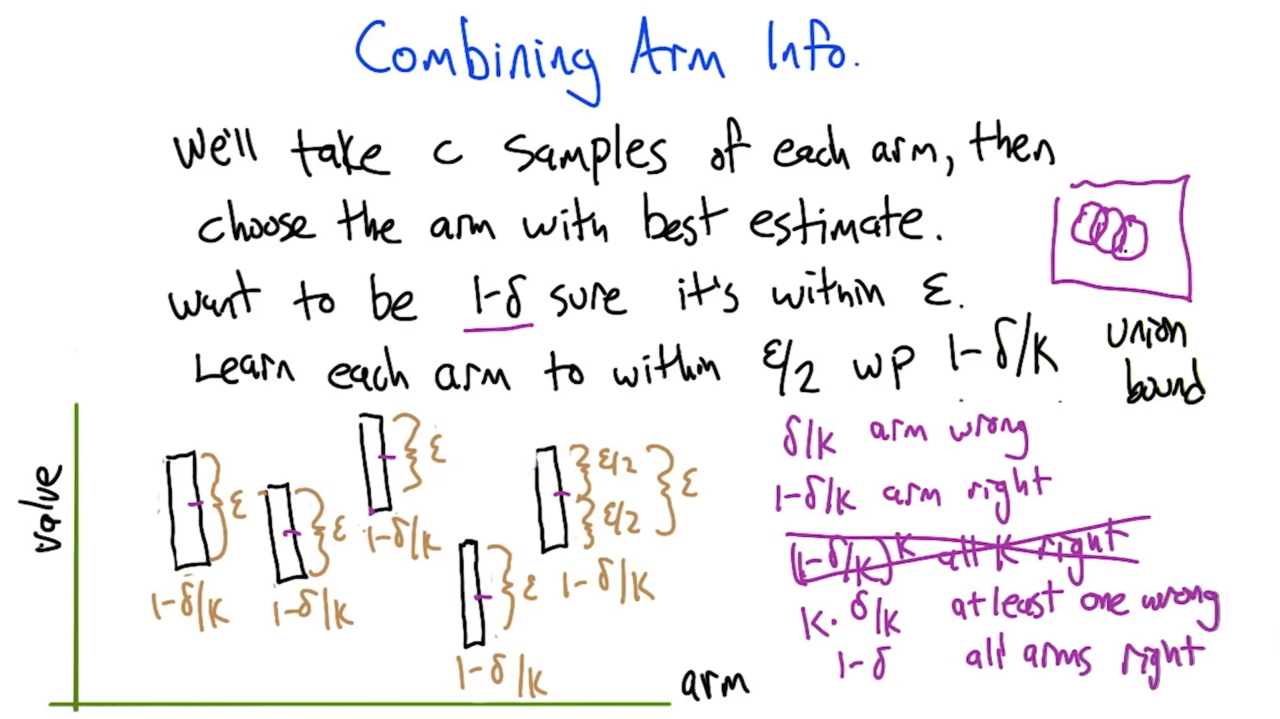 Combining Arm Info.
We'll take c samples of each arm, then
choose the arm with best estimate.
want to be 1-δ sure it's within ε.
Learn each arm to within ε/2 wp 1-δ/k
union
bound
value
ε
1-δ/k
ε
1-δ/k
ε
1-δ/k
ε
1-δ/k
ε/2
ε/2
ε
1-δ/k
arm
δ/k arm wrong
1-δ/k arm right
(1-δ/k)^k all k right
k·δ/k at least one wrong
1-δ all arms right